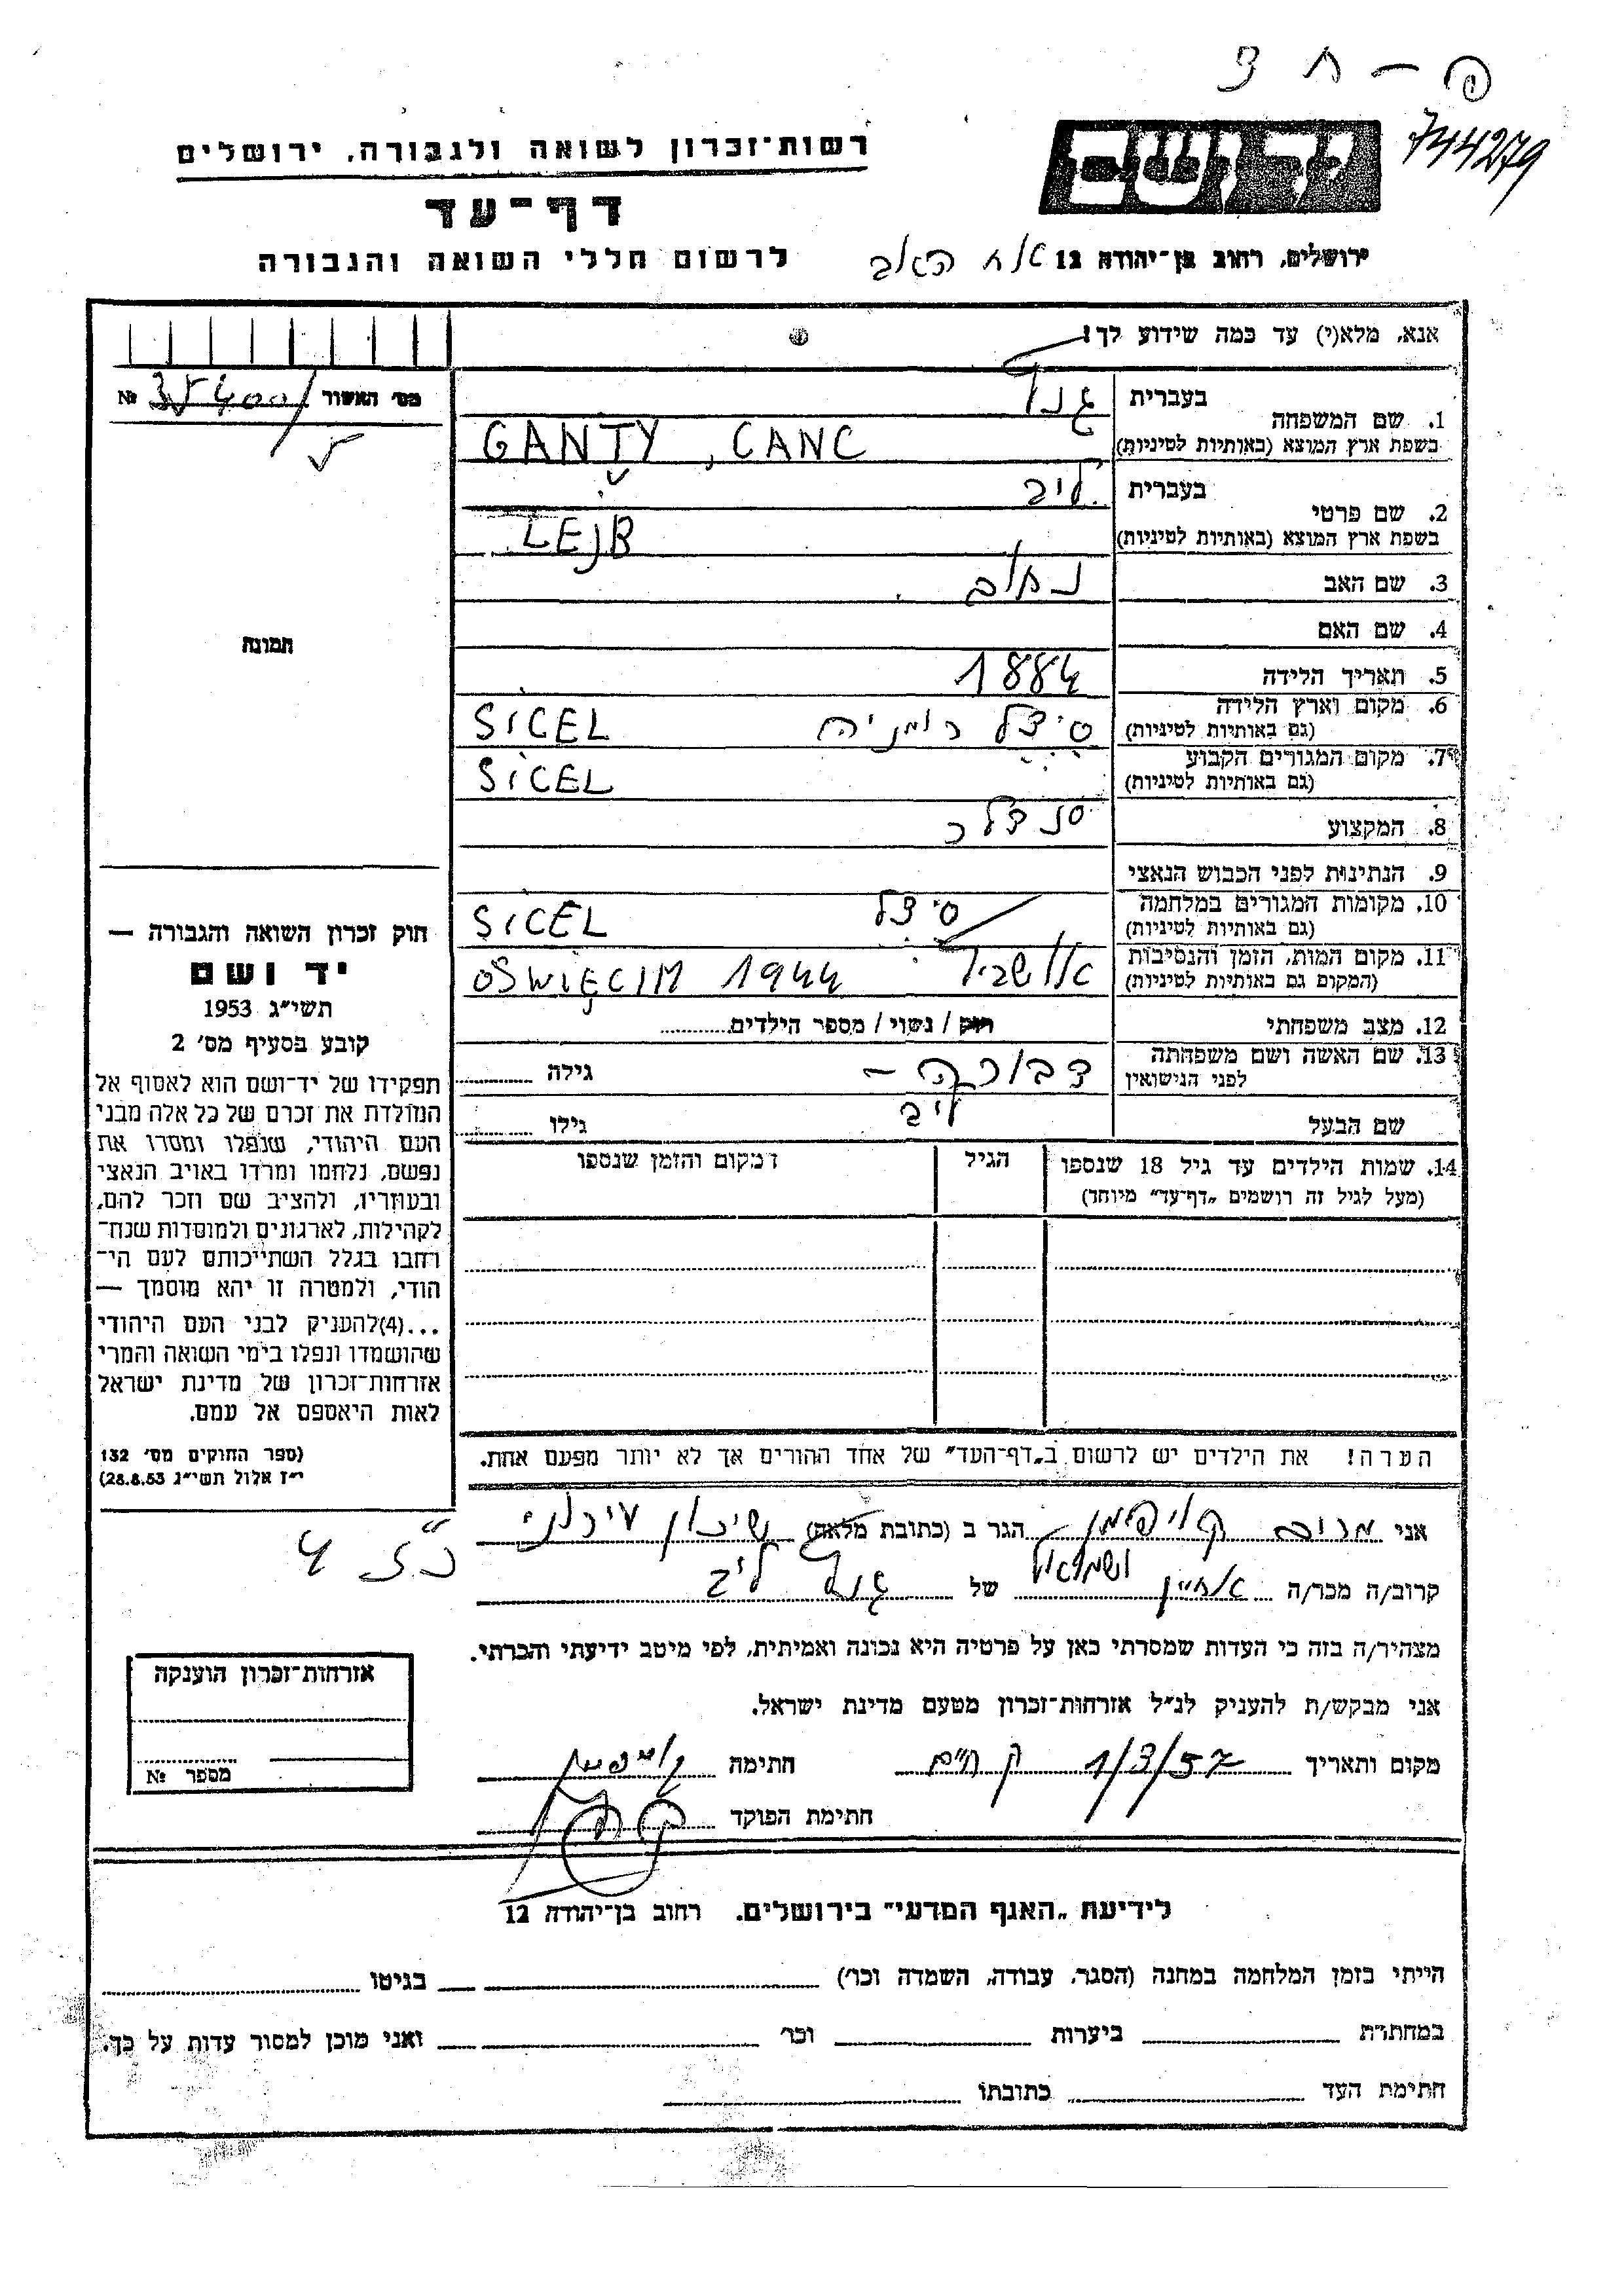 פ – ח צ
744279
יד ושם
רשות־זכרון לשואה ולגבורה, ירושלים
דף־עד
לרשום חללי השואה והגבורה
ירושלים, רחוב בן־יהודה 12
אנא, מלא(י) עד כמה שידוע לך!
מס׳ האשור № 35400/
1. שם המשפחה
בעברית
(בשפת ארץ המוצא (באותיות לטיניות
GANTY, CANC
2. שם פרטי
בעברית ליב
(בשפת ארץ המוצא (באותיות לטיניות
LEJB
3. שם האב
4. שם האם
5. תאריך הלידה 1884
6. מקום וארץ הלידה
(גם באותיות לטיניות)
סיצל רומניה SICEL
7. מקום המגורים הקבוע
(גם באותיות לטיניות)
SICEL
8. המקצוע סנדלר
9. הנתינות לפני הכבוש הנאצי
10. מקומות המגורים במלחמה
(גם באותיות לטיניות)
סיצל SICEL
11. מקום המות, הזמן והנסיבות
(המקום גם באותיות לטיניות)
OŚWIĘCIM 1944
12. מצב משפחתי רוק / נשוי / מספר הילדים
13. שם האשה ושם משפחתה
לפני הנישואין
דבורה – גילה
שם הבעל ליב גילו
14. שמות הילדים עד גיל 18 שנספו
(מעל לגיל זה רושמים „דף־עד” מיוחד)
הגיל
המקום והזמן שנספו
הערה! את הילדים יש לרשום ב„דף־העד” של אחד ההורים אך לא יותר מפעם אחת.
תמונה
חוק זכרון השואה והגבורה —
יד ושם
תשי״ג 1953
קובע בסעיף מס׳ 2
תפקידו של יד־ושם הוא לאסוף אל
המולדת את זכרם של כל אלה מבני
העם היהודי, שנפלו ומסרו את
נפשם, נלחמו ומרדו באויב הנאצי
ובעוזריו, ולהציב שם וזכר להם,
לקהילות, לארגונים ולמוסדות שנח־
רבו בגלל השתייכותם לעם הי־
הודי, ולמטרה זו יהא מוסמך —
...(4)להעניק לבני העם היהודי
שהושמדו ונפלו בימי השואה והמרי
אזרחות־זכרון של מדינת ישראל
לאות היאספם אל עמם.
(ספר החוקים מס׳ 132
י״ז אלול תשי״ג 28.8.53)
אני מרים קויפמן הגר ב (כתובת מלאה) שיכון עירוני
קרוב/ה מכר/ה אחיין של גנץ ליב
מצהיר/ה בזה כי העדות שמסרתי כאן על פרטיה היא נכונה ואמיתית, לפי מיטב ידיעתי והכרתי.
אני מבקש/ת להעניק לנ״ל אזרחות־זכרון מטעם מדינת ישראל.
מקום ותאריך 1/3/57 ק חיים חתימה
חתימת הפוקד
אזרחות־זכרון הוענקה
מספר №
לידיעת „האגף המדעי” בירושלים, רחוב בן־יהודה 12
הייתי בזמן המלחמה במחנה (הסגר, עבודה, השמדה וכו׳) בגיטו
במחתרת ביערות וכו׳ ואני מוכן למסור עדות על כך.
חתימת העד כתובתו